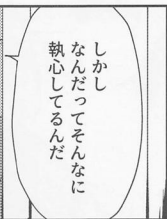 しかし
なんだってそんなに
執心してるんだ